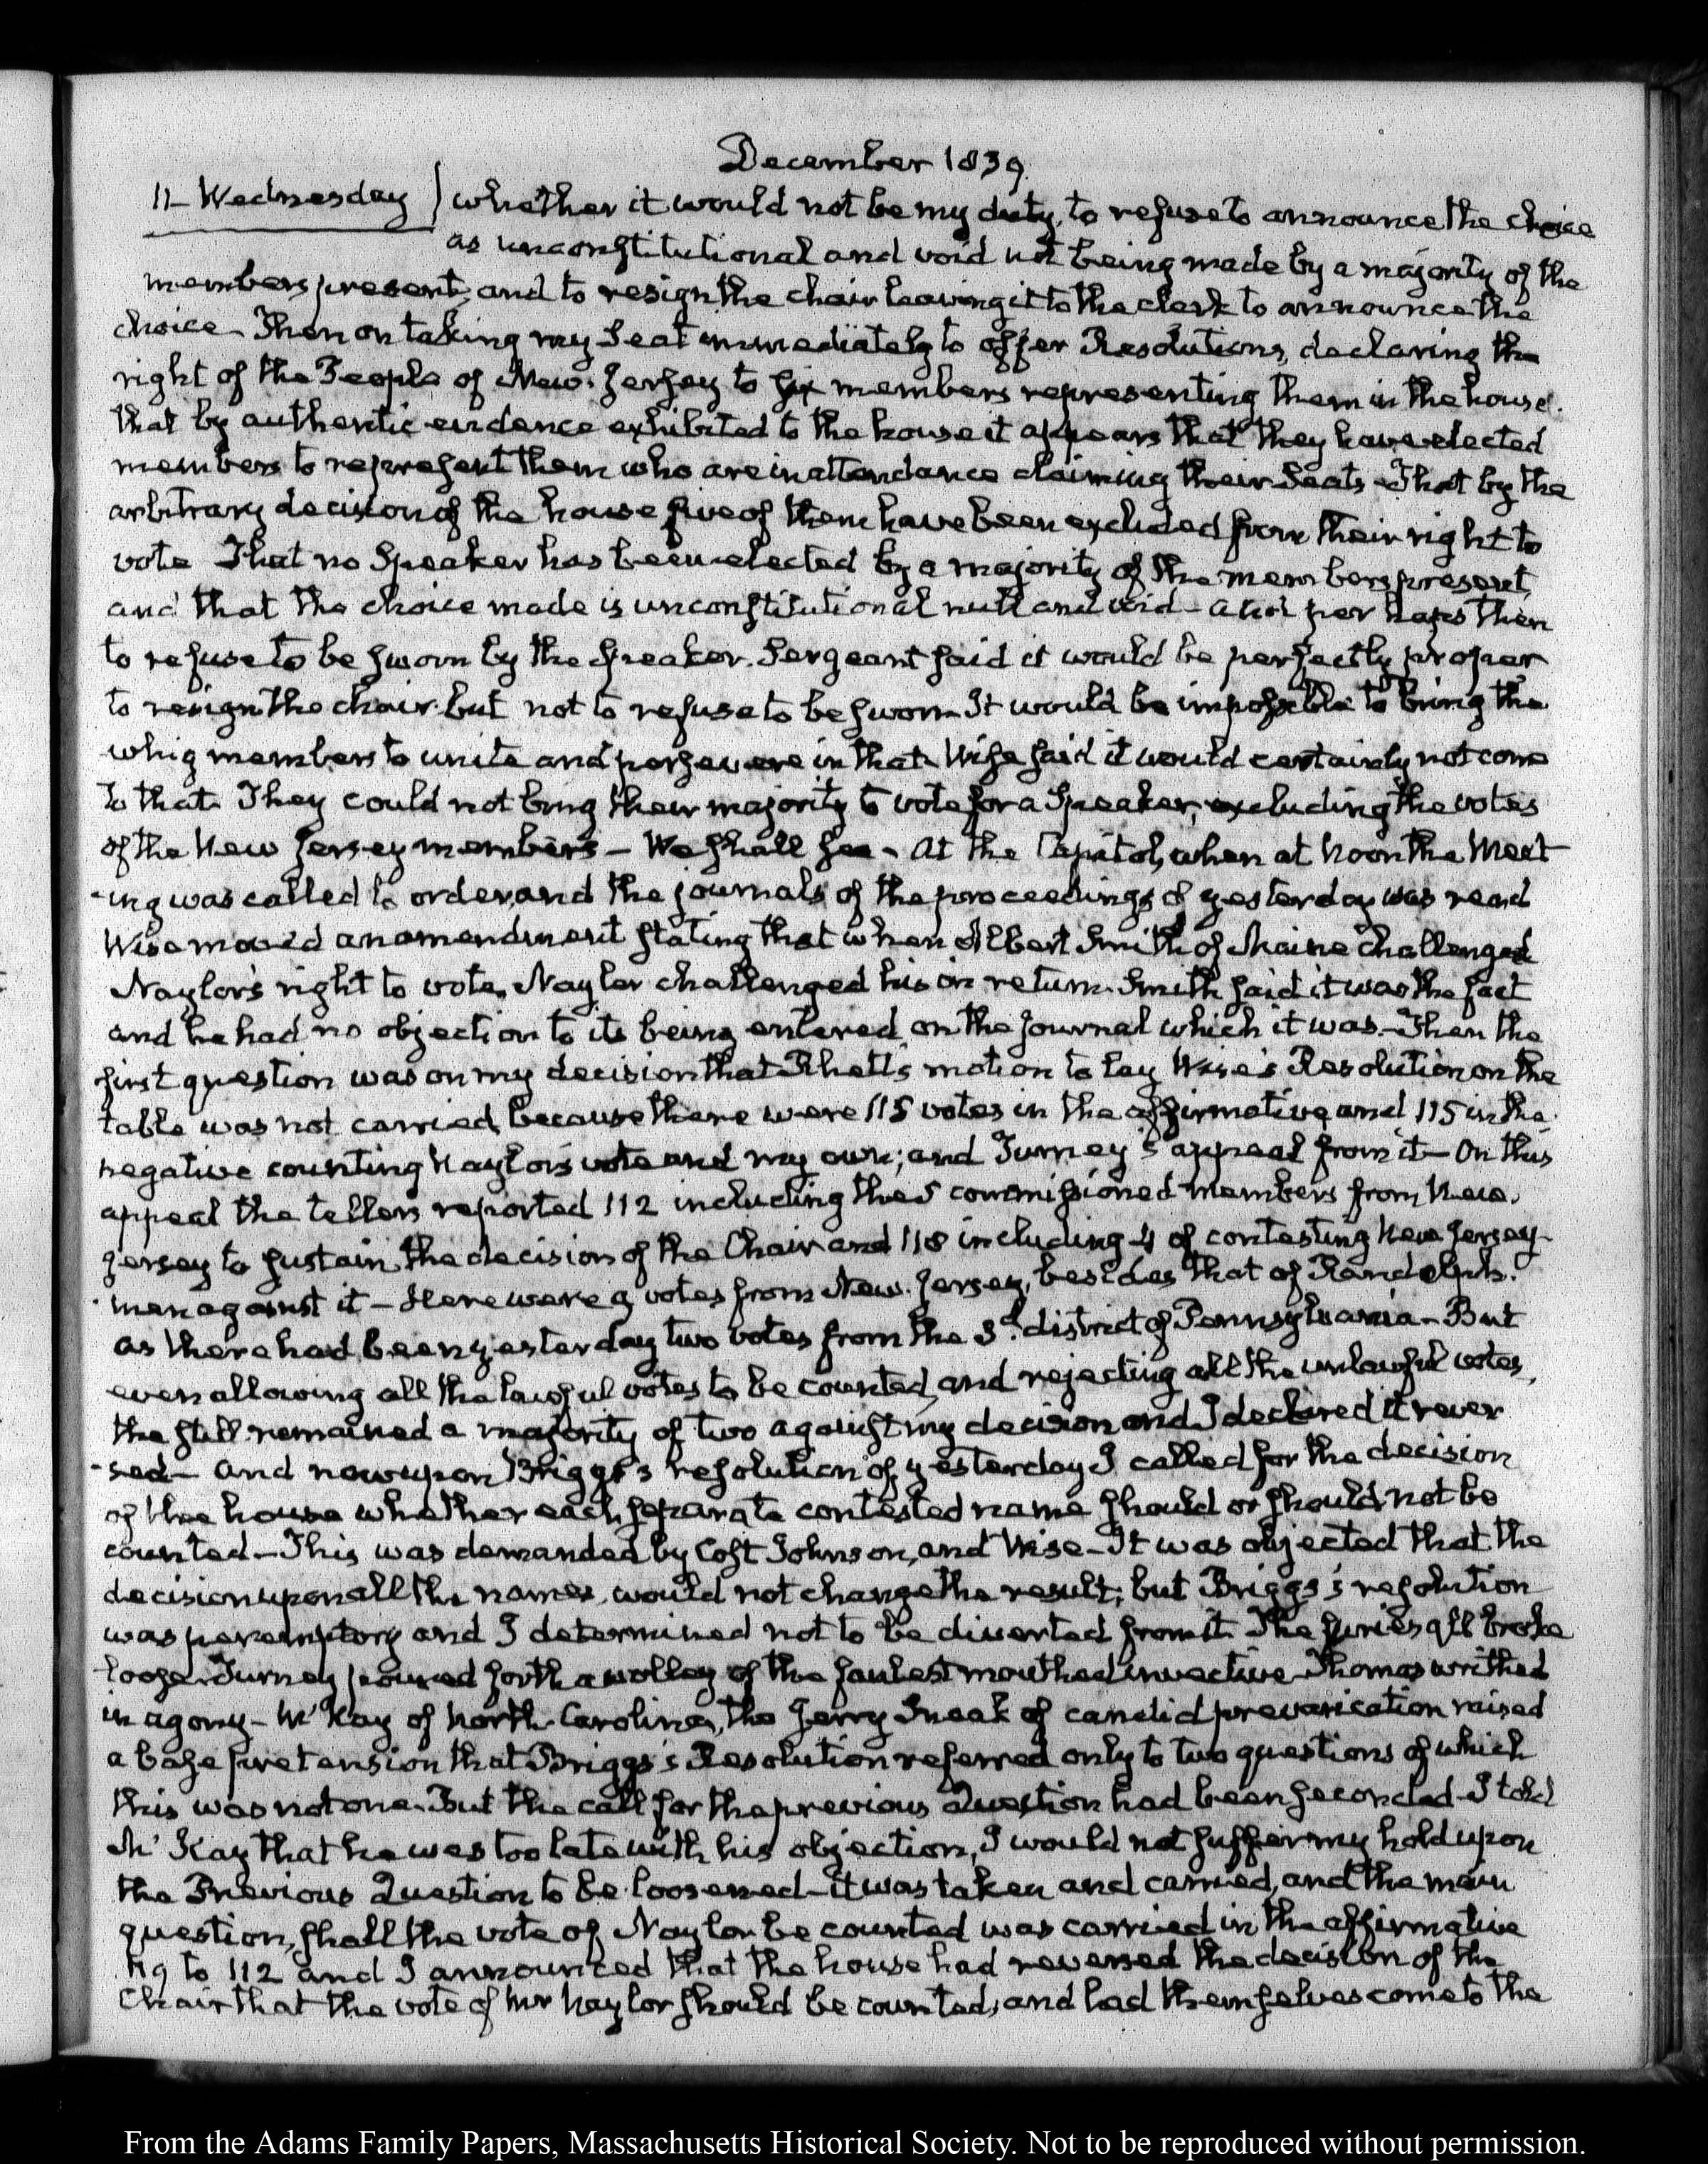 December 1839.
11- Wednesday } whether it would not be my duty, to refuse to announce the choice
as unconstitutional and void not being made by a majority of the
members present, and to resign the chair leaving it to the clerk to announce the
choice - Then on taking my Seat immediately to offer Resolutions, declaring the
right of the People of New-Jersey to six members representing them in the house.
that by authentic evidence exhibited to the house it appears that they have elected
members to represent them who are in attendance claiming their Seats - That by the
arbitrary decision of the house five of them have been excluded from their right to
vote That no Speaker has been elected by a majority of the members present,
and that the choice made is unconstitutional null and void - and perhaps then
to refuse to be sworn by the Speaker. Sergeant said it would be perfectly proper
to resign the chair but not to refuse to be sworn - It would be impossible to bring the
whig members to unite and persevere in that. Wise said it would certainly not come
to that. They could not bring their majority to vote for a Speaker, excluding the votes
of the New Jersey members - We shall see - At the Capitol, when at Noon the Meet
-ing was called to order, and the journals of the proceedings of yesterday was read
Wise moved an amendment stating that when Albert Smith of Maine challenged
Naylor's right to vote, Naylor challenged his in return. Smith said it was the fact
and he had no objection to its being entered on the Journal which it was - Then the
first question was on my decision that Rhett's motion to lay Wise's Resolution on the
table was not carried, because there were 115 votes in the affirmative and 115 in the
negative counting Naylor's vote and my own; and Turney's appeal from it - On this
appeal the tellers reported 112 including the 5 commissioned members from New.
Jersey to sustain the decision of the Chair and 118 including 4 of contesting New Jersey-
men against it - Here were 9 votes from New-Jersey, besides that of Randolph.
as there had been yesterday two votes from the 3d. district of Pennsylvania - But
even allowing all the lawful votes to be counted, and rejecting all the unlawful votes,
the still remained a majority of two against my decision and I declared it rever
-sed - and now upon Briggs's resolution of yesterday I called for the decision
of the house whether each separate contested name should or should not be
counted - This was demanded by Cost Johnson, and Wise - It was objected that the
decision upon all the names, would not change the result; but Briggs's resolution
was peremptory and I determined not to be diverted from it. The furies all broke
loose - Turney poured forth a volley of the foulest mouthed invective - Thomas writhed
in agony - McKay of North-Carolina, the Jerry Sneak of candid prevarication raised
a base pretension that Briggs's Resolution referred only to two questions of which
this was not one - But the call for the previous Question had been seconded - I told
Mc Kay that he was too late with his objection, I would not suffer my hold upon
the Previous Question to be loosened - it was taken and carried, and the main
question, shall the vote of Naylor be counted was carried in the affirmative
119 to 112 and I announced that the house had reversed the decision of the
Chair that the vote of Mr Naylor should be counted, and had themselves come to the
From the Adams Family Papers, Massachusetts Historical Society. Not to be reproduced without permission.